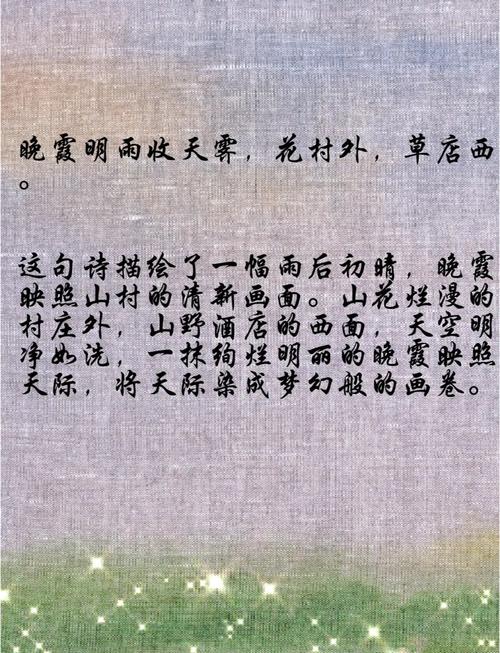 晚霞明雨收天霁，花村外，草店西
。
这句诗描绘了一幅雨后初晴，晚霞
映照山村的清新画面。山花烂漫的
村庄外，山野酒店的西面，天空明
净如洗，一抹绚烂明丽的晚霞映照
天际，将天际染成梦幻般的画卷。